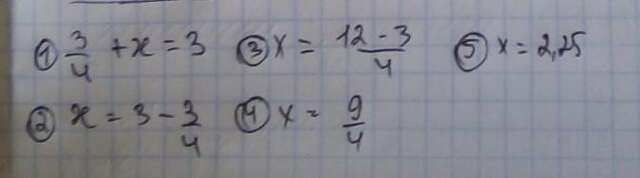 ① 3/4 + x = 3 ③ x = 12 - 3/4 ⑤ x = 2,25
② x = 3 - 3/4 ④ x = 9/4